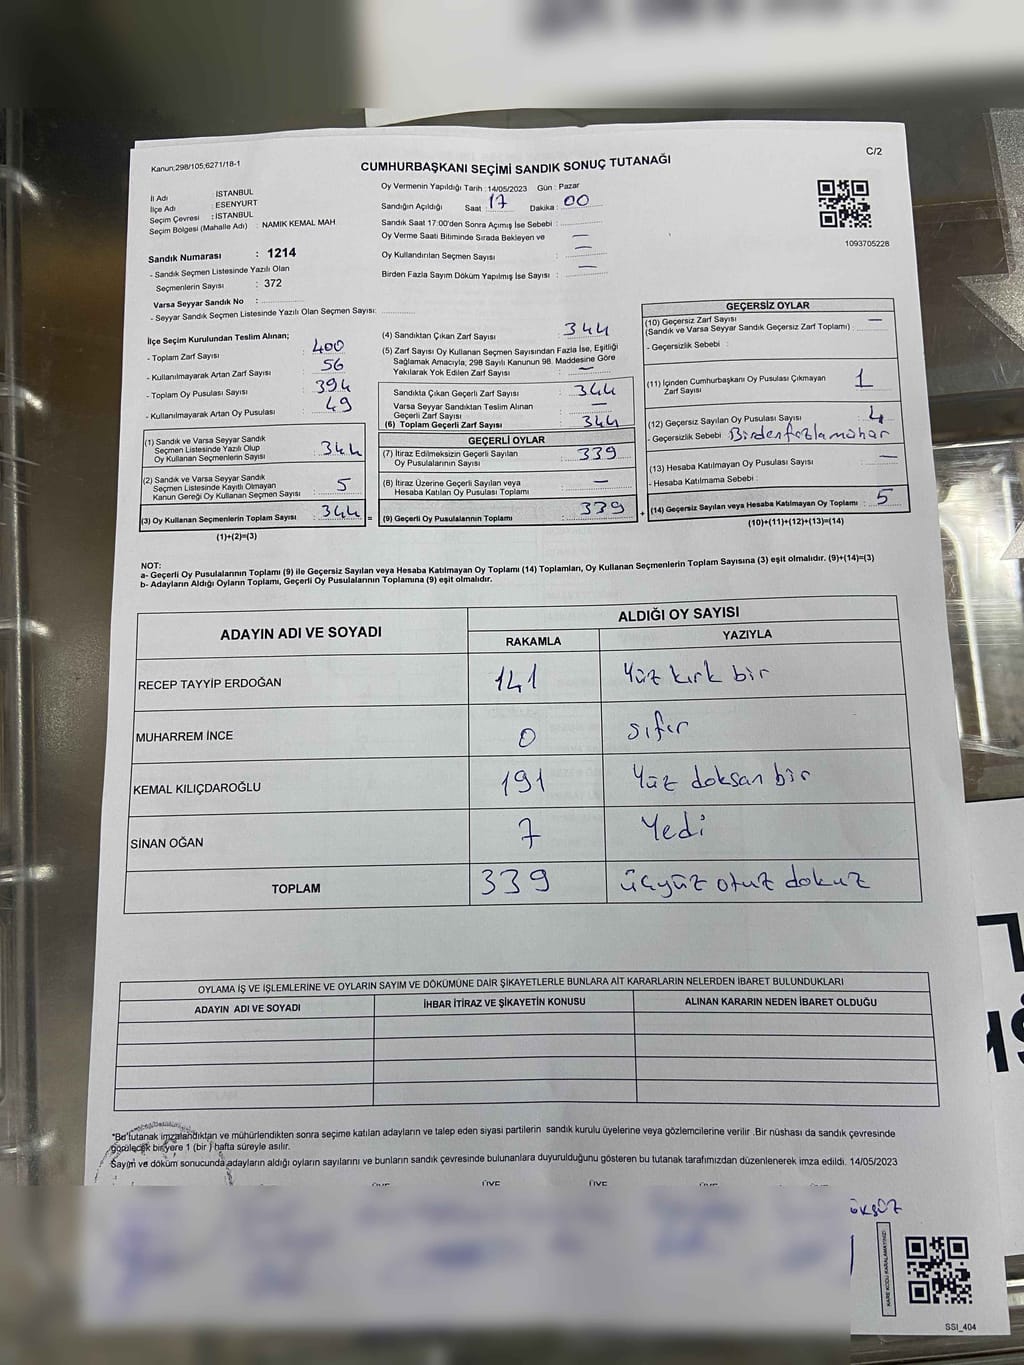 Kanun;298/105;6271/18-1
CUMHURBAŞKANI SEÇİMİ SANDIK SONUÇ TUTANAĞI
C/2
İl Adı : İSTANBUL
İlçe Adı : ESENYURT
Seçim Çevresi : İSTANBUL
Seçim Bölgesi (Mahalle Adı) : NAMIK KEMAL MAH
Oy Vermenin Yapıldığı Tarih :14/05/2023 Gün : Pazar
Sandığın Açıldığı Saat :17 Dakika :00
Sandık Saat 17:00'den Sonra Açımış İse Sebebi :
Oy Verme Saati Bitiminde Sırada Bekleyen ve —
Oy Kullandırılan Seçmen Sayısı : —
Birden Fazla Sayım Döküm Yapılmış İse Sayısı : —
1093705228
Sandık Numarası : 1214
- Sandık Seçmen Listesinde Yazılı Olan
Seçmenlerin Sayısı : 372
Varsa Seyyar Sandık No :
- Seyyar Sandık Seçmen Listesinde Yazılı Olan Seçmen Sayısı:
İlçe Seçim Kurulundan Teslim Alınan;
- Toplam Zarf Sayısı : 400
- Kullanılmayarak Artan Zarf Sayısı : 56
- Toplam Oy Pusulası Sayısı : 394
- Kullanılmayarak Artan Oy Pusulası : 49
(1) Sandık ve Varsa Seyyar Sandık
Seçmen Listesinde Yazılı Olup
Oy Kullanan Seçmenlerin Sayısı : 344
(2) Sandık ve Varsa Seyyar Sandık
Seçmen Listesinde Kayıtlı Olmayan
Kanun Gereği Oy Kullanan Seçmen Sayısı : 5
(3) Oy Kullanan Seçmenlerin Toplam Sayısı : 344 =
(1)+(2)=(3)
(4) Sandıktan Çıkan Zarf Sayısı : 344
(5) Zarf Sayısı Oy Kullanan Seçmen Sayısından Fazla İse, Eşitliği
Sağlamak Amacıyla, 298 Sayılı Kanunun 98. Maddesine Göre
Yakılarak Yok Edilen Zarf Sayısı : —
Sandıkta Çıkan Geçerli Zarf Sayısı : 344
Varsa Seyyar Sandıktan Teslim Alınan
Geçerli Zarf Sayısı : —
(6) Toplam Geçerli Zarf Sayısı : 344
GEÇERLİ OYLAR
(7) İtiraz Edilmeksizin Geçerli Sayılan
Oy Pusulalarının Sayısı : 339
(8) İtiraz Üzerine Geçerli Sayılan veya
Hesaba Katılan Oy Pusulası Toplamı : —
(9) Geçerli Oy Pusulalarının Toplamı : 339 +
GEÇERSİZ OYLAR
(10) Geçersiz Zarf Sayısı
(Sandık ve Varsa Seyyar Sandık Geçersiz Zarf Toplamı) : —
- Geçersizlik Sebebi :
(11) İçinden Cumhurbaşkanı Oy Pusulası Çıkmayan
Zarf Sayısı : 1
(12) Geçersiz Sayılan Oy Pusulası Sayısı : 4
- Geçersizlik Sebebi : Birdenfazlamühür
(13) Hesaba Katılmayan Oy Pusulası Sayısı : —
- Hesaba Katılmama Sebebi :
(14) Geçersiz Sayılan veya Hesaba Katılmayan Oy Toplamı : 5
(10)+(11)+(12)+(13)=(14)
NOT:
a- Geçerli Oy Pusulalarının Toplamı (9) ile Geçersiz Sayılan veya Hesaba Katılmayan Oy Toplamı (14) Toplamları, Oy Kullanan Seçmenlerin Toplam Sayısına (3) eşit olmalıdır. (9)+(14)=(3)
b- Adayların Aldığı Oyların Toplamı, Geçerli Oy Pusulalarının Toplamına (9) eşit olmalıdır.
ADAYIN ADI VE SOYADI
ALDIĞI OY SAYISI
RAKAMLA YAZIYLA
RECEP TAYYİP ERDOĞAN 141 Yüz kırk bir
MUHARREM İNCE 0 sıfır
KEMAL KILIÇDAROĞLU 191 Yüz doksan bir
SİNAN OĞAN 7 Yedi
TOPLAM 339 üçyüz otuz dokuz
OYLAMA İŞ VE İŞLEMLERİNE VE OYLARIN SAYIM VE DÖKÜMÜNE DAİR ŞİKAYETLERLE BUNLARA AİT KARARLARIN NELERDEN İBARET BULUNDUKLARI
ADAYIN ADI VE SOYADI İHBAR İTİRAZ VE ŞİKAYETİN KONUSU ALINAN KARARIN NEDEN İBARET OLDUĞU
*Bu tutanak imzalandıktan ve mühürlendikten sonra seçime katılan adayların ve talep eden siyasi partilerin sandık kurulu üyelerine veya gözlemcilerine verilir .Bir nüshası da sandık çevresinde
görülecek bir yere 1 (bir ) hafta süreyle asılır.
Sayım ve döküm sonucunda adayların aldığı oyların sayılarını ve bunların sandık çevresinde bulunanlara duyurulduğunu gösteren bu tutanak tarafımızdan düzenlenerek imza edildi. 14/05/2023
ÜYE ÜYE ÜYE ÜYE
KARE KODU KARALAMAYINIZ!
SSI_404